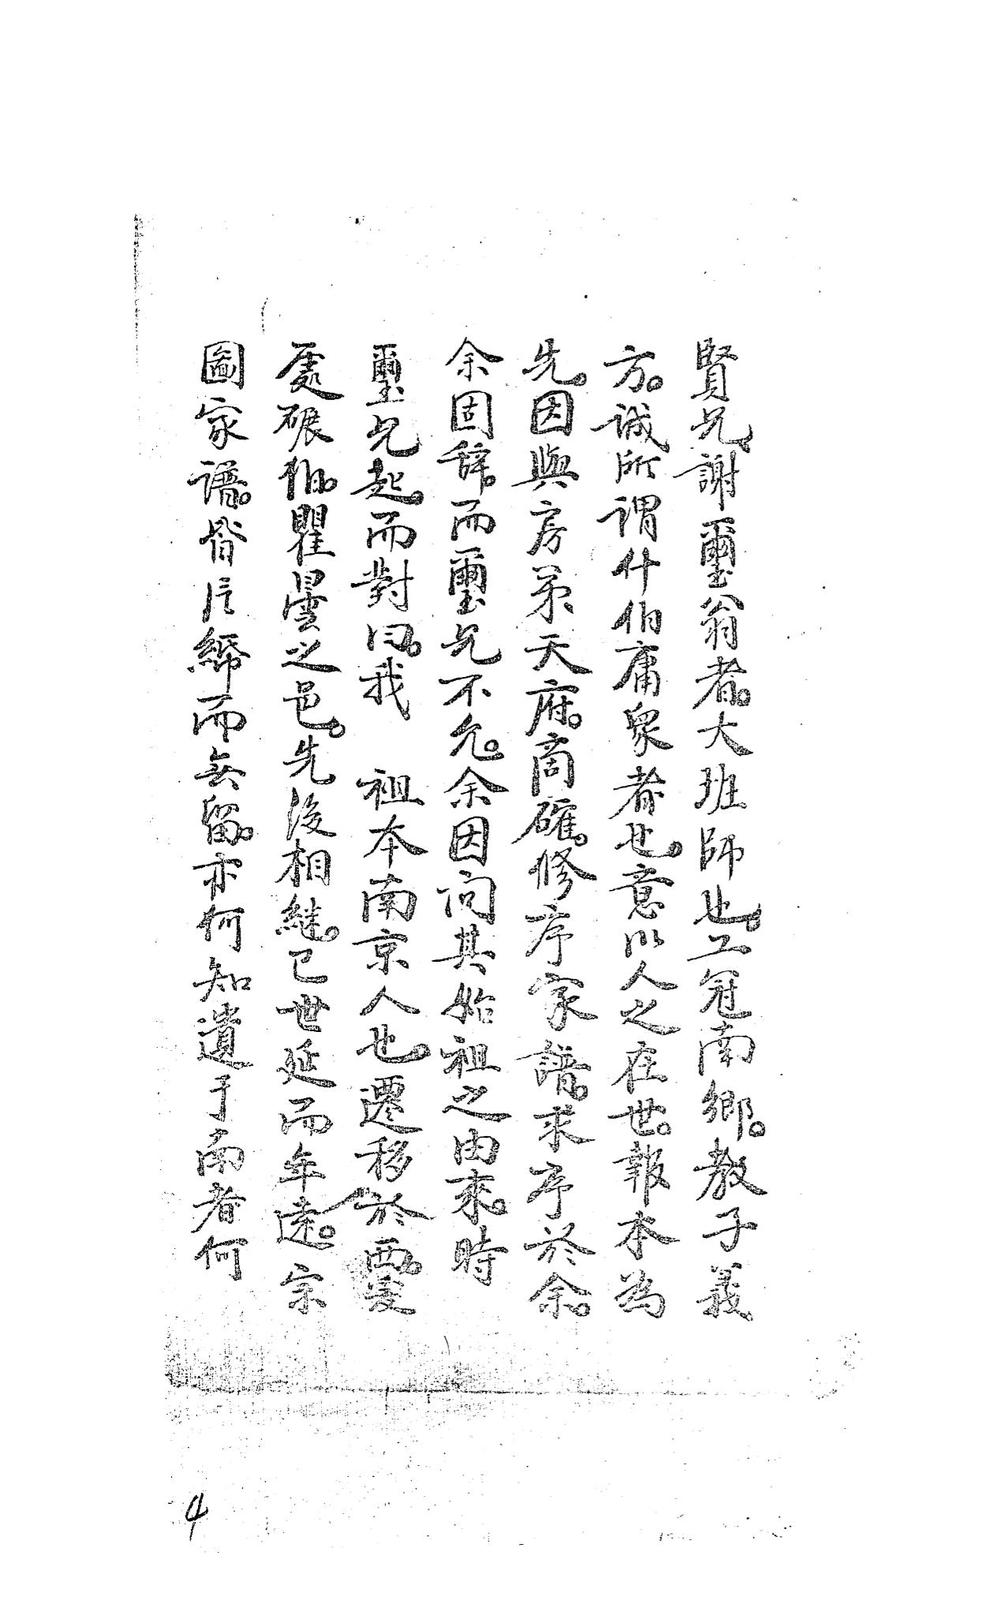 賢兄謝璽翁者。大班師也。工冠南鄉。教子義
方。誠所謂什伯庸衆者也。意以人之在世。報本為
先。因與房弟天府。商確。修序家譜。求序於余。
余固辞。而璽兄不允。余因问其始祖之由來。時
璽兄起而對曰。我　祖本南京人也。遷移於西。爰
處碾伯。瞿曇之邑。先後相継。已世延而年遠。宗
圖家譜。皆氏綿而無留。亦何知遺于南者何
4